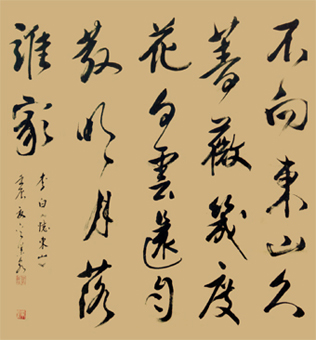 不向東山久
薔薇幾度
花白雲還自
散明月落
誰家
李白憶東山